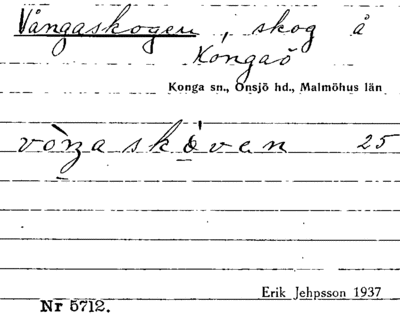 Vångaskogen, skog å
Kongaö
Konga sn., Onsjö hd., Malmöhus län
25
Erik Jehpsson 1937
Nr 5712.